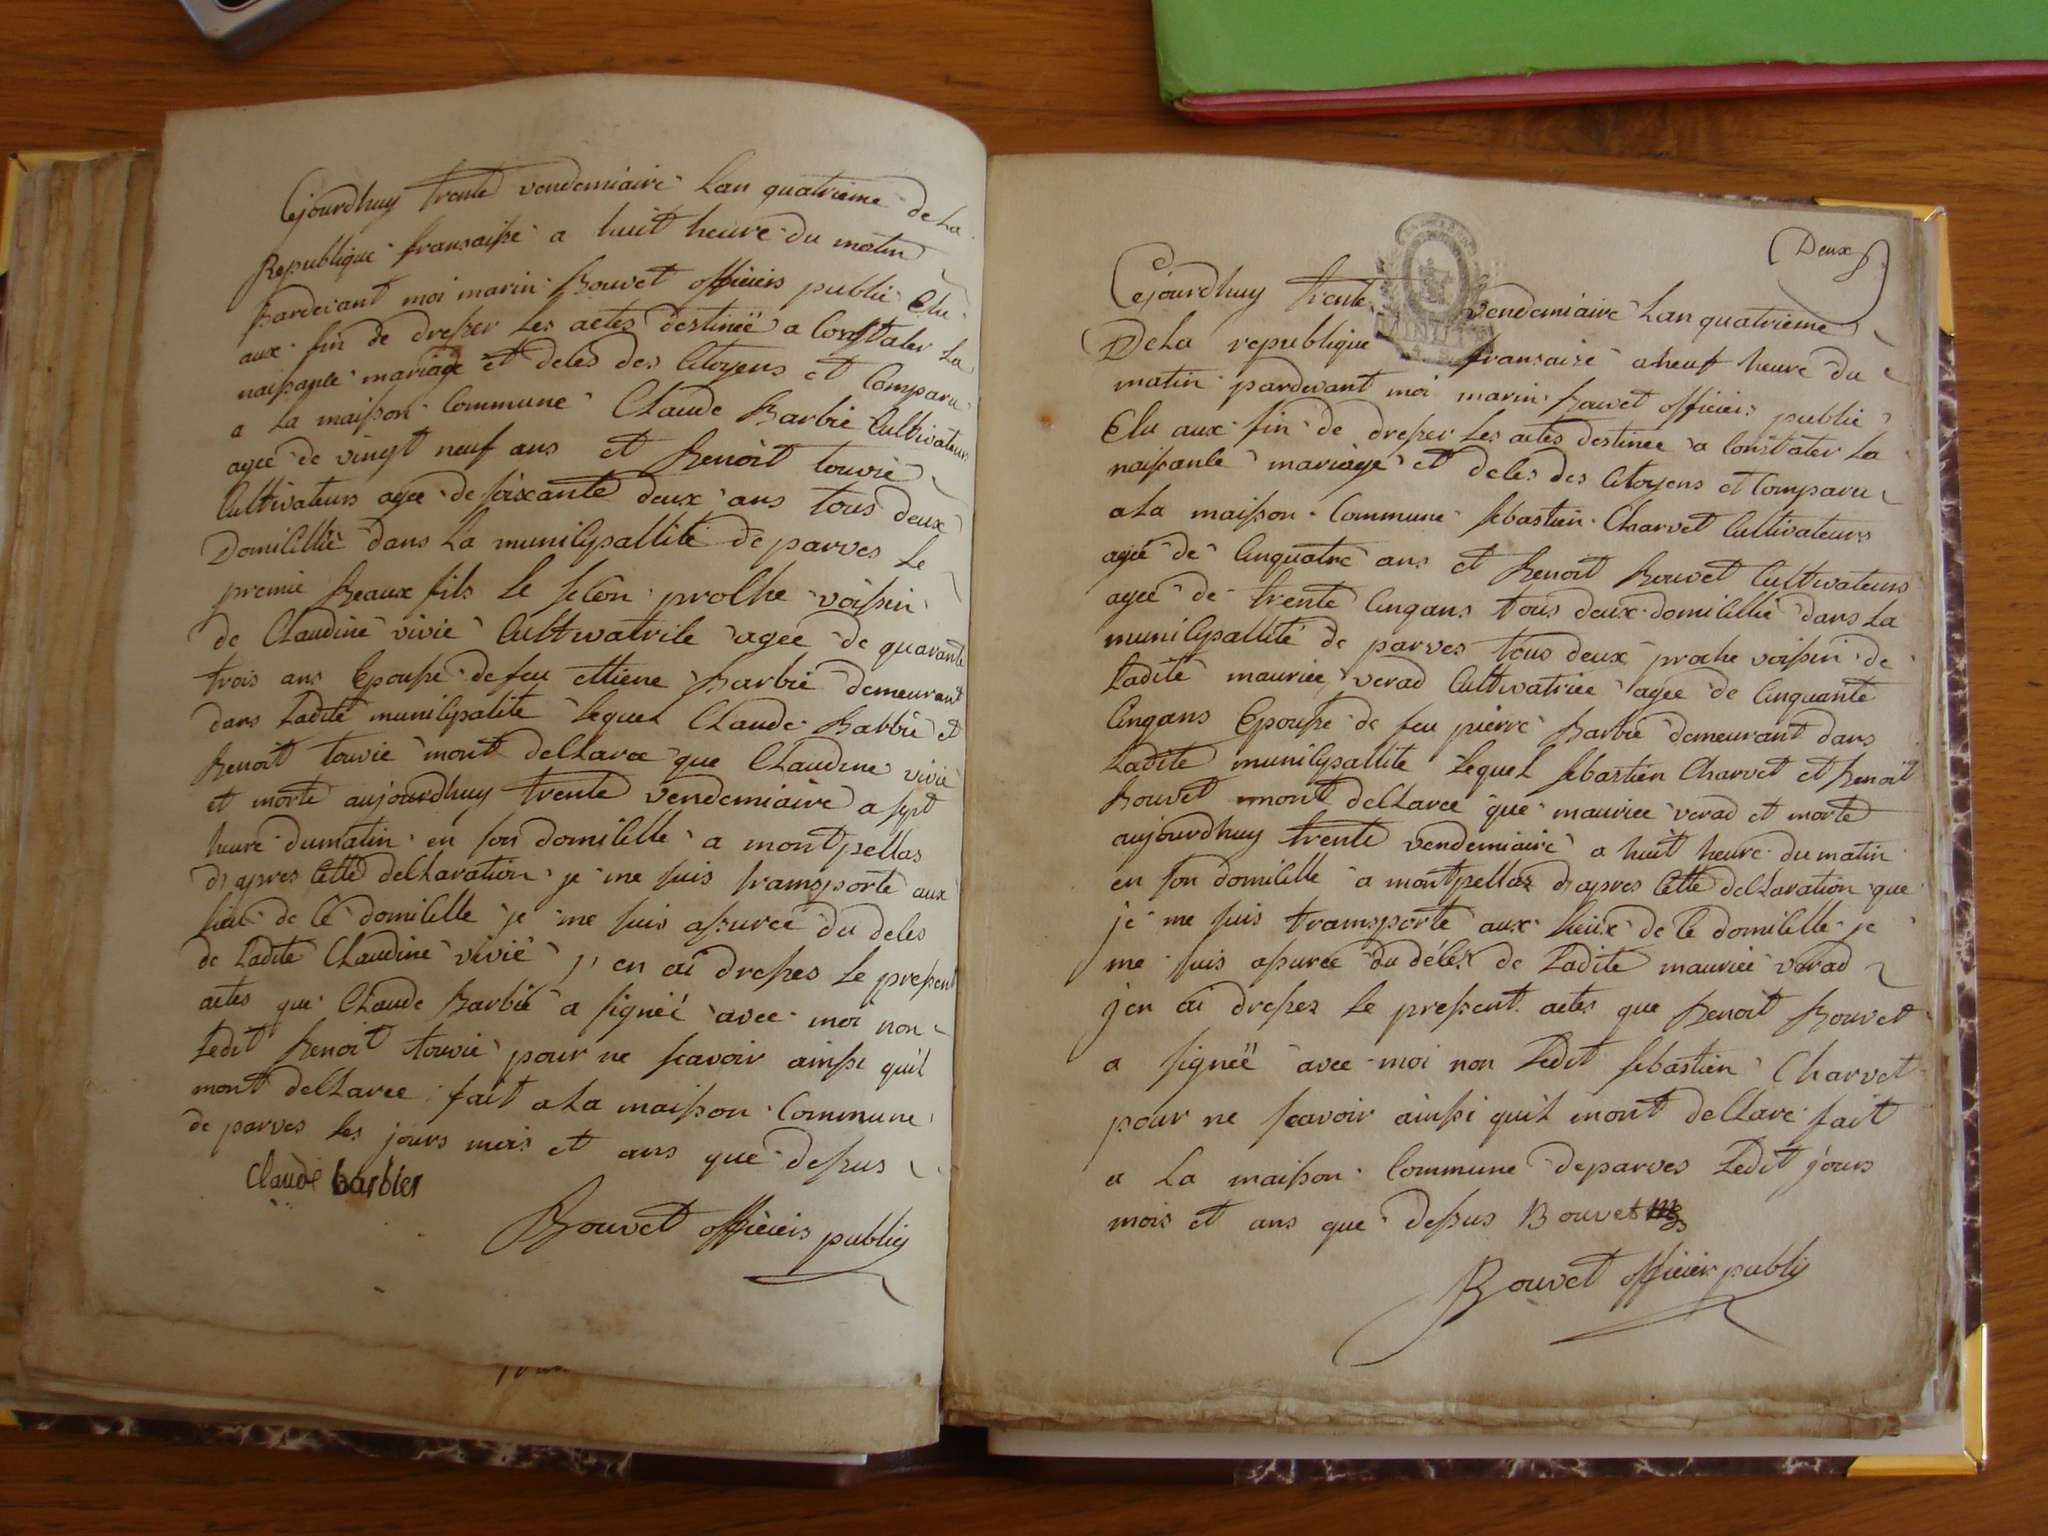 Cejourdhuy trente vendemiaire Lan quatrieme de La
Republique fransaisse a huit heure du matin
Pardevant moi marin Bouvet officiers public Elu
aux fin de dresser Les actes destineé a Constater La
naissance mariage et deces des Citoyens et Comparu
a La maisson Commune Claude Barbie Cultivateurs
ageé de vingt neuf ans et Benoit touvie
Cultivateurs ageé de soixante deux ans tous deux
Domicillié dans La municipallité de parves Le
premie Beaux fils Le secon proche voissin
de Claudine vivié Cultivatrice agee de quarante
trois ans Epousse de feu ettiene Barbié demeurant
dans Ladite municipalite Lequel Claude Barbié et
Benoit touvie mont declaree que Claudine vivié
et morte aujourdhuy trente vendemiaire a sept
heure du matin en son domicille a montpellas
d'apres cette declaration je me suis transporté aux
lieu de ce domicille je me suis assuree du deces
de Ladite Claudine vivié j'en ai dresses Le pressent
actes que Claude Barbié a signeé avec moi non
Ledit Benoit touvie pour ne scavoir ainssi quil
mont declaree fait a La maisson Commune
de parves Les jours mois et ans que dessus
Claude barbier
Bouvet officiers public
Deux
Cejourdhuy trente vendemiaire Lan quatrieme
De La republique fransaise a neuf heure du
matin pardevant moi marin Bouvet officiers public
Elu aux fin de dresser Les actes destinee a Constater La
naissance mariage et deces des Citoyens et Comparu
a La maisson Commune sebastien Charvet Cultivateurs
ageé de Cinquatre ans et Benoit Bouvet Cultivateurs
ageé de trente Cinqans tous deux domicillié dans La
municipallité de parves tous deux proche voissin de
Ladite mauriee verad Cultivatrice agee de Cinquante
Cinqans Epousse de feu pierre Barbié demeurant dans
Ladite municipallite Lequel sebastien Charvet et Benoit
Bouvet mont declaree que mauriee verad et morte
aujourdhuy trente vendemiaire a huit heure du matin
en son domicille a montpellaz d'apres cette declaration que
je me suis transporté aux lieux de ce domicille je
me suis assuree du déces de Ladite mauriee verad
j'en ai dresser Le pressent actes que Benoit Bouvet
a signeë avec moi non Ledit sebastien Charvet
pour ne scavoir ainssi quil mont declare fait
a La maisson Commune de parves Ledit jours
mois et ans que dessus Bouvet
Bouvet officier public